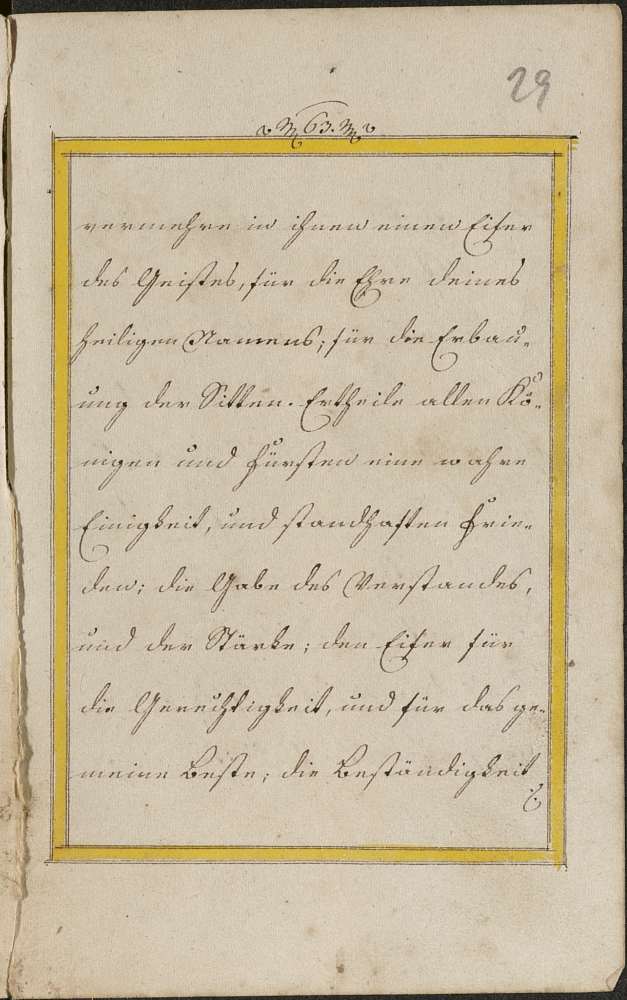 29
63.
vermehre in ihnen einen Eifer
des Geistes, für die Ehre deines
heiligen Namens; für die Erbau-
ung der Sitten. Ertheile allen Kö-
nigen und Fürsten eine wahre
Einigkeit, und standhaften Frie-
den; die Gabe des Verstandes,
und der Stärke; den Eifer für
die Gerechtigkeit, und für das ge-
meine Beste; die Beständigkeit